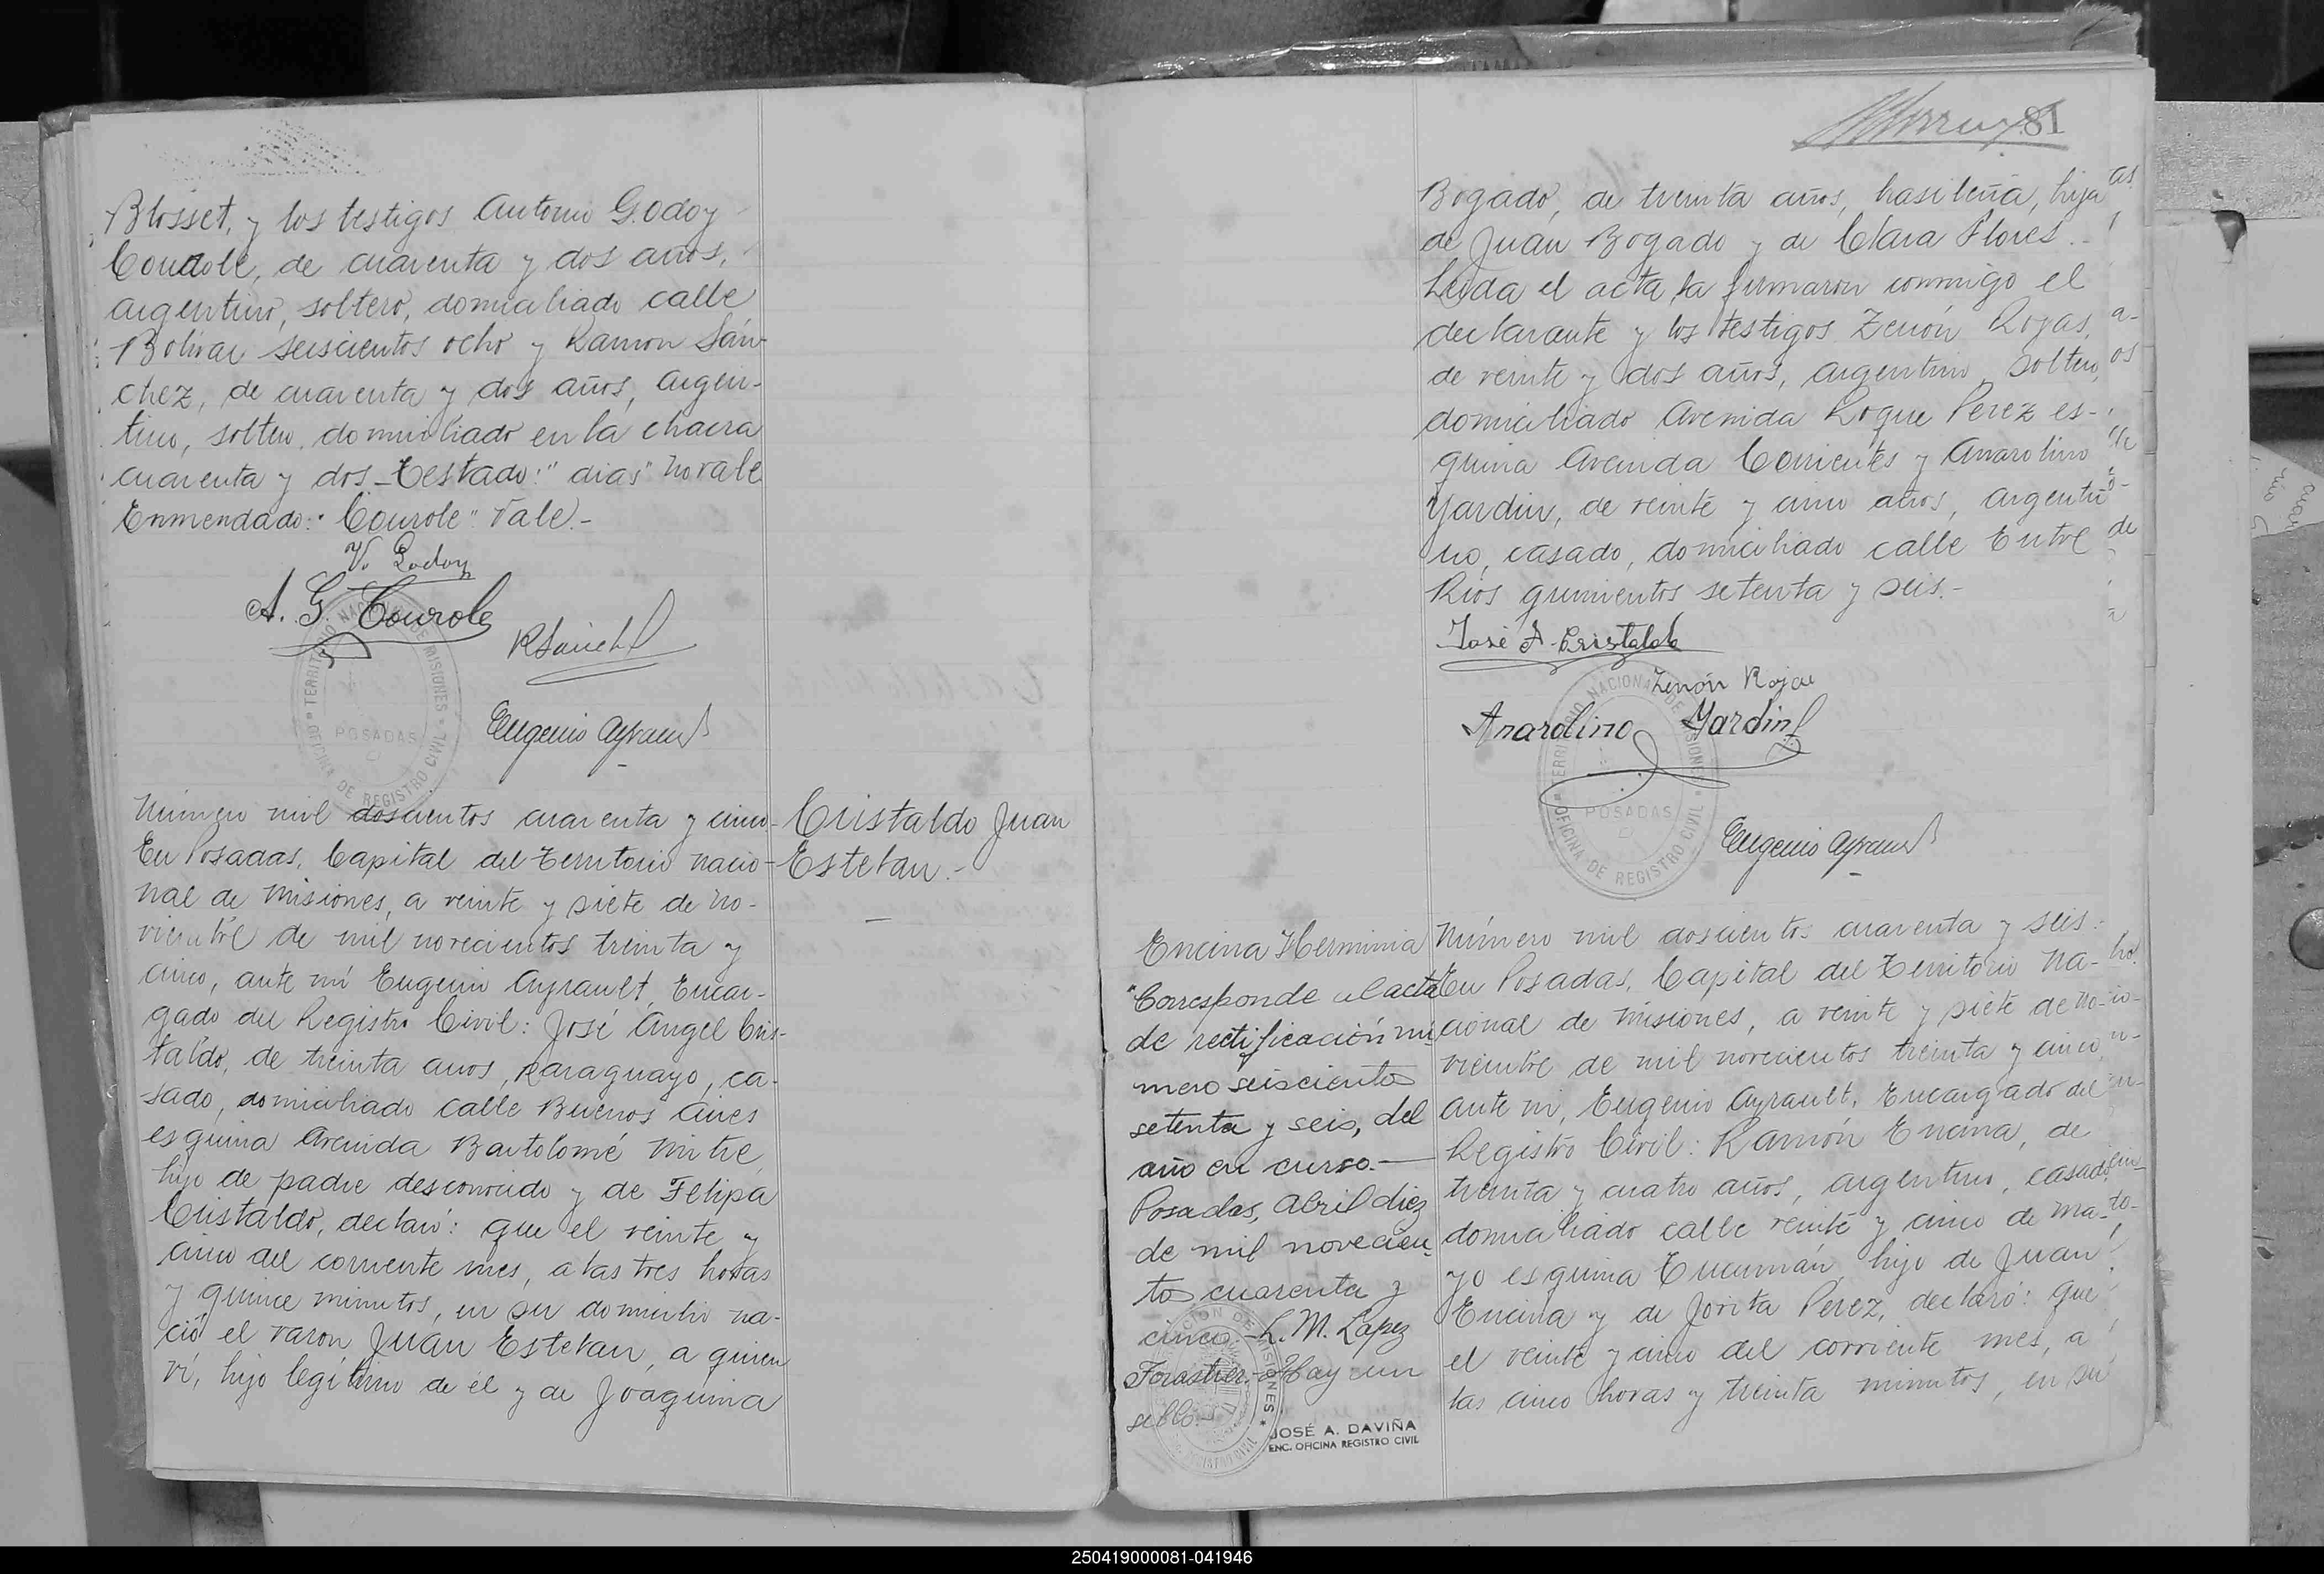 Blosset, y los testigos Antonio Godoy
Courole, de cuarenta y dos años,
argentino, soltero, domiciliado calle
Bolívar seiscientos ocho y Ramon Sán-
chez, de cuarenta y dos años, argen-
tino, soltero, domiciliado en la chacra
cuarenta y dos - Testado: "dias" no vale
Enmendado: "Courole" Vale.-
V. Godoy
A. G. Courole
R Sánchez
Eugenio Ayrault
TERRITORIO NACIONAL DE MISIONES
POSADAS
OFICINA DE REGISTRO CIVIL
Número mil doscientos cuarenta y cinco-
En Posadas, Capital del Territorio Nacio-
nal de Misiones, a veinte y siete de No-
viembre de mil novecientos treinta y
cinco, ante mí Eugenio Ayrault, Encar-
gado del Registro Civil: José Angel Cris-
taldo, de treinta años, paraguayo, ca-
sado, domiciliado calle Buenos Aires
esquina Avenida Bartolomé Mitre,
hijo de padre desconocido y de Felipa
Cristaldo, declaró: que el veinte y
cinco del corriente mes, a las tres horas
y quince minutos, en su domicilio na-
ció el varon Juan Esteban, a quien
ví, hijo legítimo de él y de Joaquina
Cristaldo Juan
Esteban.-
81
Bogado, de treinta años, brasileña, hija
de Juan Bogado y de Clara Flores.-
Leída el acta, la firmaron conmigo el
declarante y los testigos Zenón Rojas,
de veinte y dos años, argentino, soltero,
domiciliado Avenida Roque Perez es-
quina Avenida Corrientes y Anarolino
Yardin, de veinte y cinco años, argenti-
no, casado, domiciliado calle Entre
Rios quinientos setenta y seis.-
José A. Cristaldo
Zenón Rojas
Anarolino Yardin
TERRITORIO NACIONAL DE MISIONES
POSADAS
OFICINA DE REGISTRO CIVIL
Eugenio Ayrault
Encina Herminia
"Corresponde al acta
de rectificación nú
mero seiscientos
setenta y seis, del
año en curso.—
Posadas, Abril diez
de mil novecien
tos cuarenta y
cinco.- L. M. Lopez
Forastier.- Hay un
sello.-
JOSÉ A. DAVIÑA
ENC. OFICINA REGISTRO CIVIL
Número mil doscientos cuarenta y seis:
En Posadas, Capital del Territorio Na-
cional de Misiones, a veinte y siete de No-
viembre de mil novecientos treinta y cinco,
ante mí, Eugenio Ayrault, Encargado del
Registro Civil: Ramón Encina, de
treinta y cuatro años, argentino, casado,
domiciliado calle veinte y cinco de Ma-
yo esquina Tucumán, hijo de Juan
Encina y de Jovita Perez, declaró: que
el veinte y cinco del corriente mes, a
las cinco horas y treinta minutos, en su
250419000081-041946